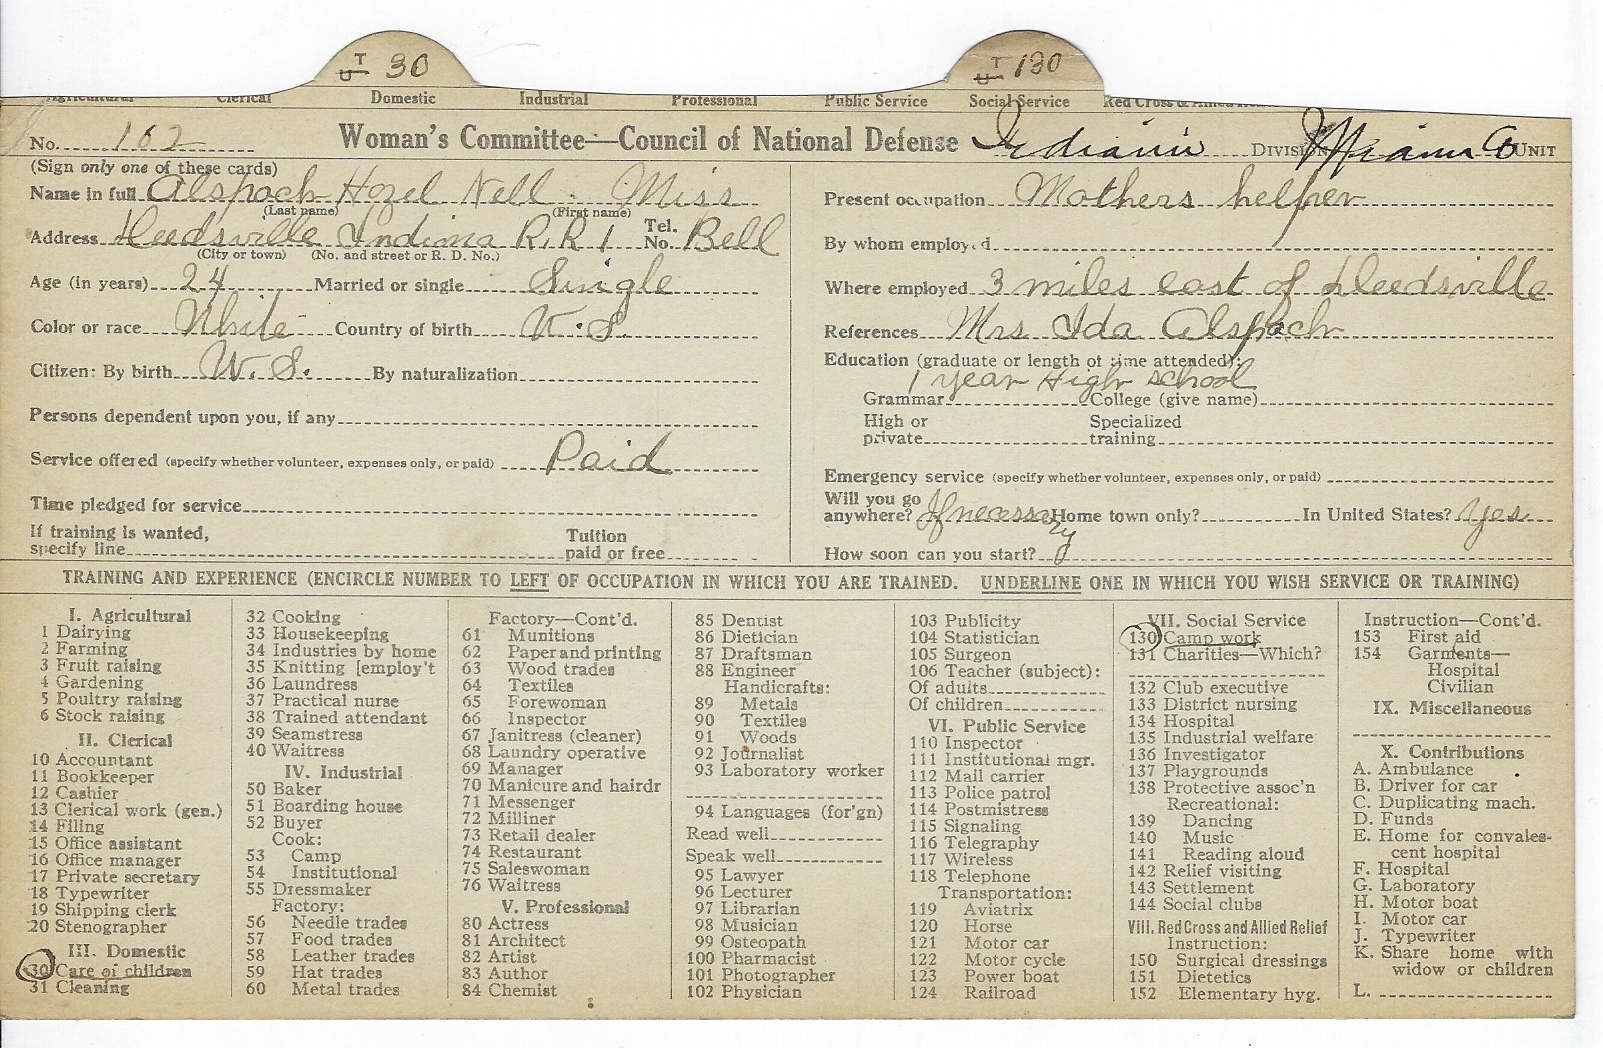 U T 30
U T 130
Agricultural Clerical Domestic Industrial Professional Public Service Social Service Red Cross & Allied
No. 162 Woman's Committee—Council of National Defense Indiana DIVISION Miami Co UNIT
(Sign only one of these cards)
Name in full Alspach Hazel Nell Miss
(Last name) (First name)
Address Deedsville Indiana R.R 1 Tel. No. Bell
(City or town) (No. and street or R. D. No.)
Age (in years) 24 Married or single Single
Color or race White Country of birth U.S.
Citizen: By birth U.S. By naturalization
Persons dependent upon you, if any
Service offered (specify whether volunteer, expenses only, or paid) Paid
Time pledged for service
If training is wanted,
specify line Tuition paid or free
Present occupation Mothers helper
By whom employed
Where employed 3 miles east of Deedsville
References Mrs Ida Alspach
Education (graduate or length of time attended):
1 year High school
Grammar College (give name)
High or private Specialized training
Emergency service (specify whether volunteer, expenses only, or paid)
Will you go
anywhere? If necessary Home town only? In United States? Yes
How soon can you start?
TRAINING AND EXPERIENCE (ENCIRCLE NUMBER TO LEFT OF OCCUPATION IN WHICH YOU ARE TRAINED. UNDERLINE ONE IN WHICH YOU WISH SERVICE OR TRAINING)
I. Agricultural
1 Dairying
2 Farming
3 Fruit raising
4 Gardening
5 Poultry raising
6 Stock raising
II. Clerical
10 Accountant
11 Bookkeeper
12 Cashier
13 Clerical work (gen.)
14 Filing
15 Office assistant
16 Office manager
17 Private secretary
18 Typewriter
19 Shipping clerk
20 Stenographer
III. Domestic
30 Care of children
31 Cleaning
32 Cooking
33 Housekeeping
34 Industries by home
35 Knitting [employ't
36 Laundress
37 Practical nurse
38 Trained attendant
39 Seamstress
40 Waitress
IV. Industrial
50 Baker
51 Boarding house
52 Buyer
Cook:
53 Camp
54 Institutional
55 Dressmaker
Factory:
56 Needle trades
57 Food trades
58 Leather trades
59 Hat trades
60 Metal trades
Factory—Cont'd.
61 Munitions
62 Paper and printing
63 Wood trades
64 Textiles
65 Forewoman
66 Inspector
67 Janitress (cleaner)
68 Laundry operative
69 Manager
70 Manicure and hairdr
71 Messenger
72 Milliner
73 Retail dealer
74 Restaurant
75 Saleswoman
76 Waitress
V. Professional
80 Actress
81 Architect
82 Artist
83 Author
84 Chemist
85 Dentist
86 Dietician
87 Draftsman
88 Engineer
Handicrafts:
89 Metals
90 Textiles
91 Woods
92 Journalist
93 Laboratory worker
94 Languages (for'gn)
Read well
Speak well
95 Lawyer
96 Lecturer
97 Librarian
98 Musician
99 Osteopath
100 Pharmacist
101 Photographer
102 Physician
103 Publicity
104 Statistician
105 Surgeon
106 Teacher (subject):
Of adults
Of children
VI. Public Service
110 Inspector
111 Institutional mgr.
112 Mail carrier
113 Police patrol
114 Postmistress
115 Signaling
116 Telegraphy
117 Wireless
118 Telephone
Transportation:
119 Aviatrix
120 Horse
121 Motor car
122 Motor cycle
123 Power boat
124 Railroad
VII. Social Service
130 Camp work
131 Charities—Which?
132 Club executive
133 District nursing
134 Hospital
135 Industrial welfare
136 Investigator
137 Playgrounds
138 Protective assoc'n
Recreational:
139 Dancing
140 Music
141 Reading aloud
142 Relief visiting
143 Settlement
144 Social clubs
VIII. Red Cross and Allied Relief
Instruction:
150 Surgical dressings
151 Dietetics
152 Elementary hyg.
Instruction—Cont'd.
153 First aid
154 Garments—
Hospital
Civilian
IX. Miscellaneous
X. Contributions
A. Ambulance
B. Driver for car
C. Duplicating mach.
D. Funds
E. Home for convales-
cent hospital
F. Hospital
G. Laboratory
H. Motor boat
I. Motor car
J. Typewriter
K. Share home with
widow or children
L.